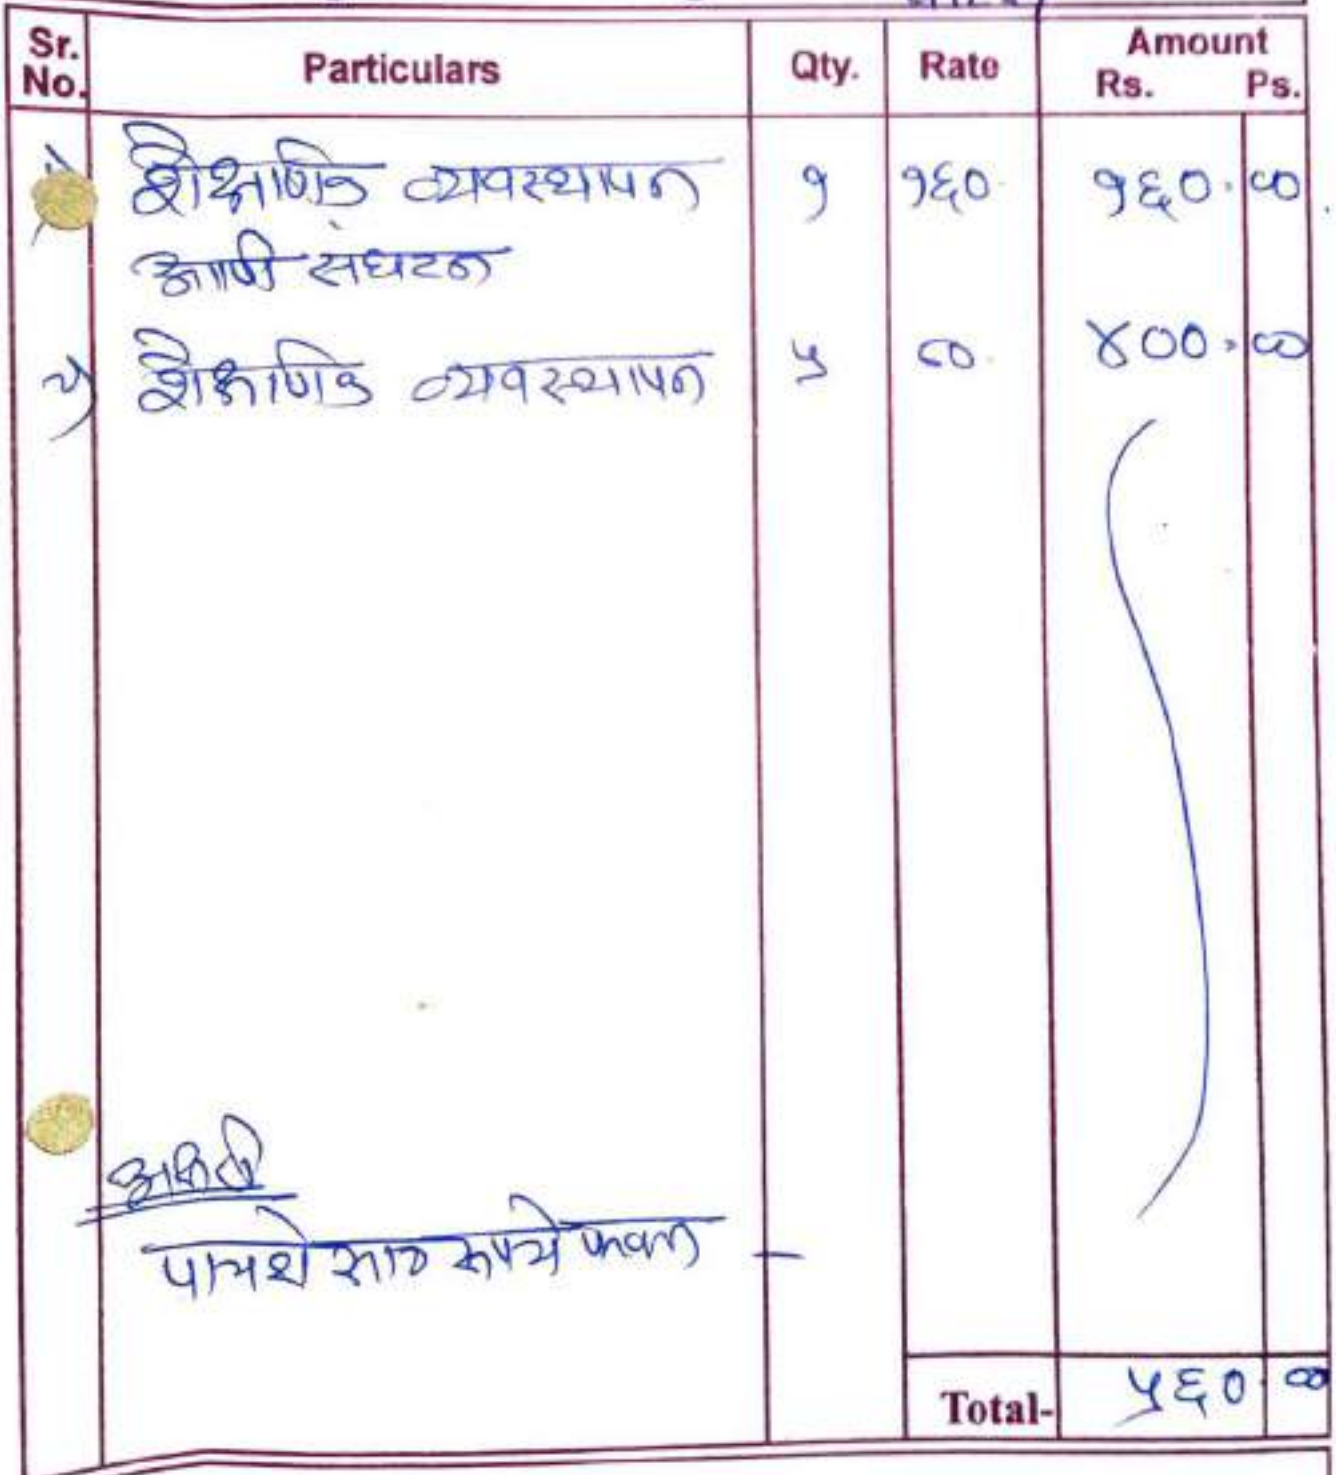 Sr. No. Particulars Qty. Rate Amount Rs. Ps.
१) शैक्षणिक व्यवस्थापन १ १६० १६०.००
आणी संघटन
२) शैक्षणिक व्यवस्थापन ५ ८० ४००.००
अक्षरी
पाचशे साठ रूपये फक्त —
Total- ५६०.००